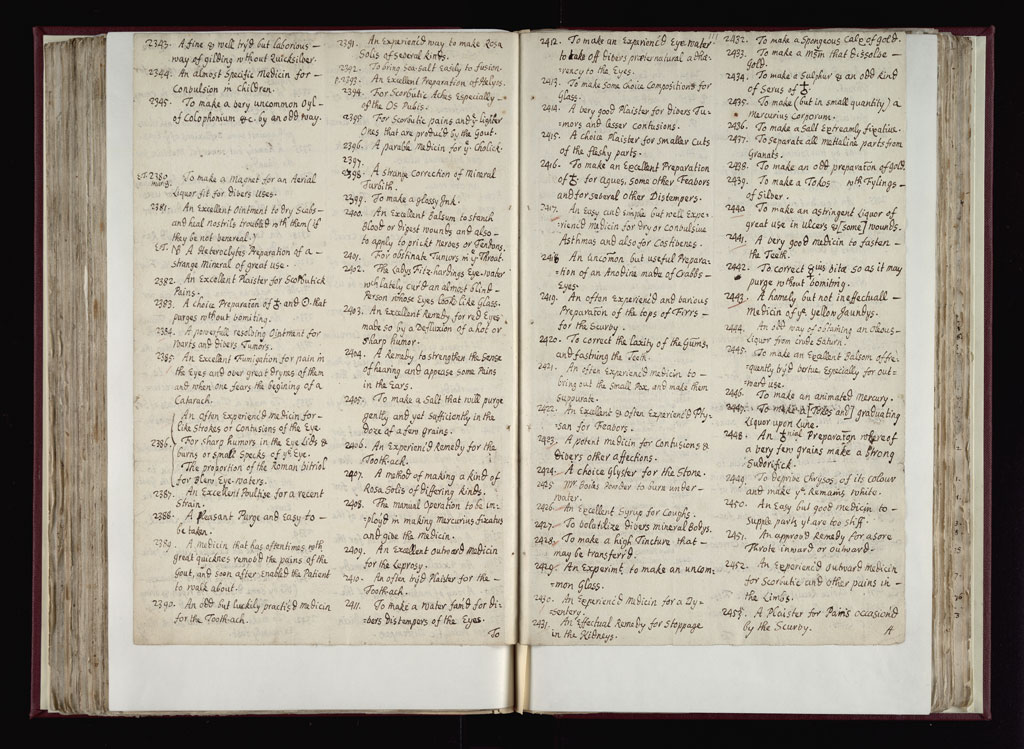 2343. A fine & well try'd but laborious
way of gilding without Quicksilver.
2344. An almost Specific Medicin for
Convulsion in children.
2345. To make a very uncommon Oyl
of Colophonium &c. by an odd way.
2380. To make a Magnet for an Aerial
Liquor fit for divers Uses.
2381. An Excellent Ointment to dry Scabs
and heal Nostrils troubled wth them (if
they be not venereal.)
A Heteroclytes Preparation of a
strange Mineral of great use.
2382. An Excellent Plaister for Scorbutick
Pains.
2383. A choice Preparation of ♁ and ☉ that
purges without vomiting.
2384. A powerfull resolving Ointment for
Warts and divers Tumors.
2385. An Excellent Fumigation for pain in
the Eyes and over great Dryness of them
and when one fears the begining of a
Cataract.
An often Experienc'd medicin for
like Strokes or Contusions of the Eye
2386. For sharp humors in the Eye Lids &
burns or small Specks of ye Eye.
The proportion of the Roman vitriol
for Blew Eye-waters.
2387. An Excellent Poultise for a recent
Strain.
2388. A Pleasant Purge and Easy to
be taken.
2389. A medicin that has oftentimes wth
great quicknes remov'd the pains of the
Gout, and soon after Enabled the Patient
to walk about.
2390. An odd but luckily practis'd medicin
for the Tooth-ach.
2391. An Experienc'd way to make Rosa
Solis of several kinds.
2392. To bring Sea-salt Easily to fusion.
2393. An Excellent Preparation of
2394. For Scorbutic Aches Especially
of the Os Pubis.
2395. For Scorbutic pains and ye lighter
Ones that are produc'd by the Gout.
2396. A parable Medicin for ye Cholick.
2397.
2398. A strange Correction of Mineral
Turbith.
2399. To make a glossy Ink.
2400. An Excellent Balsum to stanch
Blood or digest wounds and also
to apply to prickt Nerves or Tendons.
2401. For obstinate Tumors in ye Throat.
2402. The Lady Fitz-hardings Eye-water
wch lately cur'd an almost blind
Person whose Eyes look'd like Glass.
2403. An Excellent Remedy for red Eyes
made so by a Defluxion of a hot or
sharp humor.
2404. A Remedy to strengthen the Sense
of hearing and appease some Pains
in the Ears.
2405. To make a Salt that will purge
gently and yet sufficiently in the
Doze of a few grains.
2406. An Experienc'd Remedy for the
Tooth-ach.
2407. A method of making a kind of
Rosa Solis of differing kinds.
2408. The manual Operation to be im=
=ploy'd in making Mercurius fixatus
and give the Medicin.
2409. An Excellent outward medicin
for the Leprosy.
2410. An often try'd Plaister for the
Tooth-ach.
2411. To make a water fam'd for di=
=vers distempers of the Eyes.
To
2412. To make an Experienc'd Eye water
to take off divers præternatural adhæ=
=rency to the Eyes.
2413. To make some choice Compositions for
Glass.
2414. A very good Plaister for divers Tu=
=mors and lesser contusions.
2415. A choice Plaister for smaller cuts
of the fleshy parts.
2416. To make an Excellent Preparation
of ♁ for Agues, some other Feavors
and for several other Distempers.
2417. An Easy and simple but well Expe=
=rienc'd medicin for dry or convulsive
Asthmas and also for Costivenes.
2418. An uncomon but useful Prepara=
=tion of an Anodine made of Crabbs
Eyes.
2419. An often Experienc'd and various
Preparation of the tops of Firrs
for the Scurvy.
2420. To correct the laxity of the Gums,
and fastning the Teeth.
2421. An often Experienc'd medicin to
bring out the Small Pox, and make them
Suppurate.
2422. An Excellent & often Experienc'd Phy=
=san for Feavors.
2423. A potent medicin for Contusions &
divers other affections.
2424. A choice Glyster for the Stone.
2425. Mr. Boiks Powder to burn under
water.
2426. An Excellent Syrup for Coughs.
2427. To volatilize divers mineral Bodys.
2428. To make a high Tincture that
may be transferr'd.
2429. An Experimt. to make an uncom=
=mon Glass.
2430. An Experienc'd medicin for a Dy=
=sentery.
2431. An Effectual Remedy for Stoppage
in the Kidneys.
2432. To make a Spongeous Calx of gold.
2433. To make a Mm that dissolves
Gold.
2434. To make a Sulphur & an odd kind
of Serus of ♁.
2435. To make (but in small quantity) a
Mercurius Corporum.
2436. To make a Salt Extreamly fixative.
2437. To separate all metalline parts from
Granats.
2438. To make an odd preparation of gold.
2439. To make a Tokos wth Fylings
of Silver.
2440. To make an astringent Liquor of
great use in Ulcers & [some] wounds.
2441. A very good medicin to fasten
the Teeth.
2442. To correct ☿ius vitæ so as it may
purge without vomiting.
2443. A homely but not ineffectuall
Medicin of ye yellow Jaundys.
2444. An odd way of obtaining an Oleous
Liquor from crude Saturn.
2445. To make an Excellent Balsom of fre=
=quently try'd vertue. Especially for out=
=ward use.
2446. To make an animated Mercury.
2447. To make a [Tokos and] graduating
Liquor upon Lune.
2448. An ♁nial Preparation whereof
a very few grains make a strong
Sudorifick.
2449. To deprive Chrysos. of its colour
and make ye Remains white.
2450. An Easy but good medicin to
supple parts yt are too stiff.
2451. An approv'd Remedy for a sore
Throte inward or outward.
2452. An Experienc'd outward Medicin
for Scorbutic and other pains in
the Limbs.
2453. A Plaister for Pains occasion'd
by the Scurvy.
A